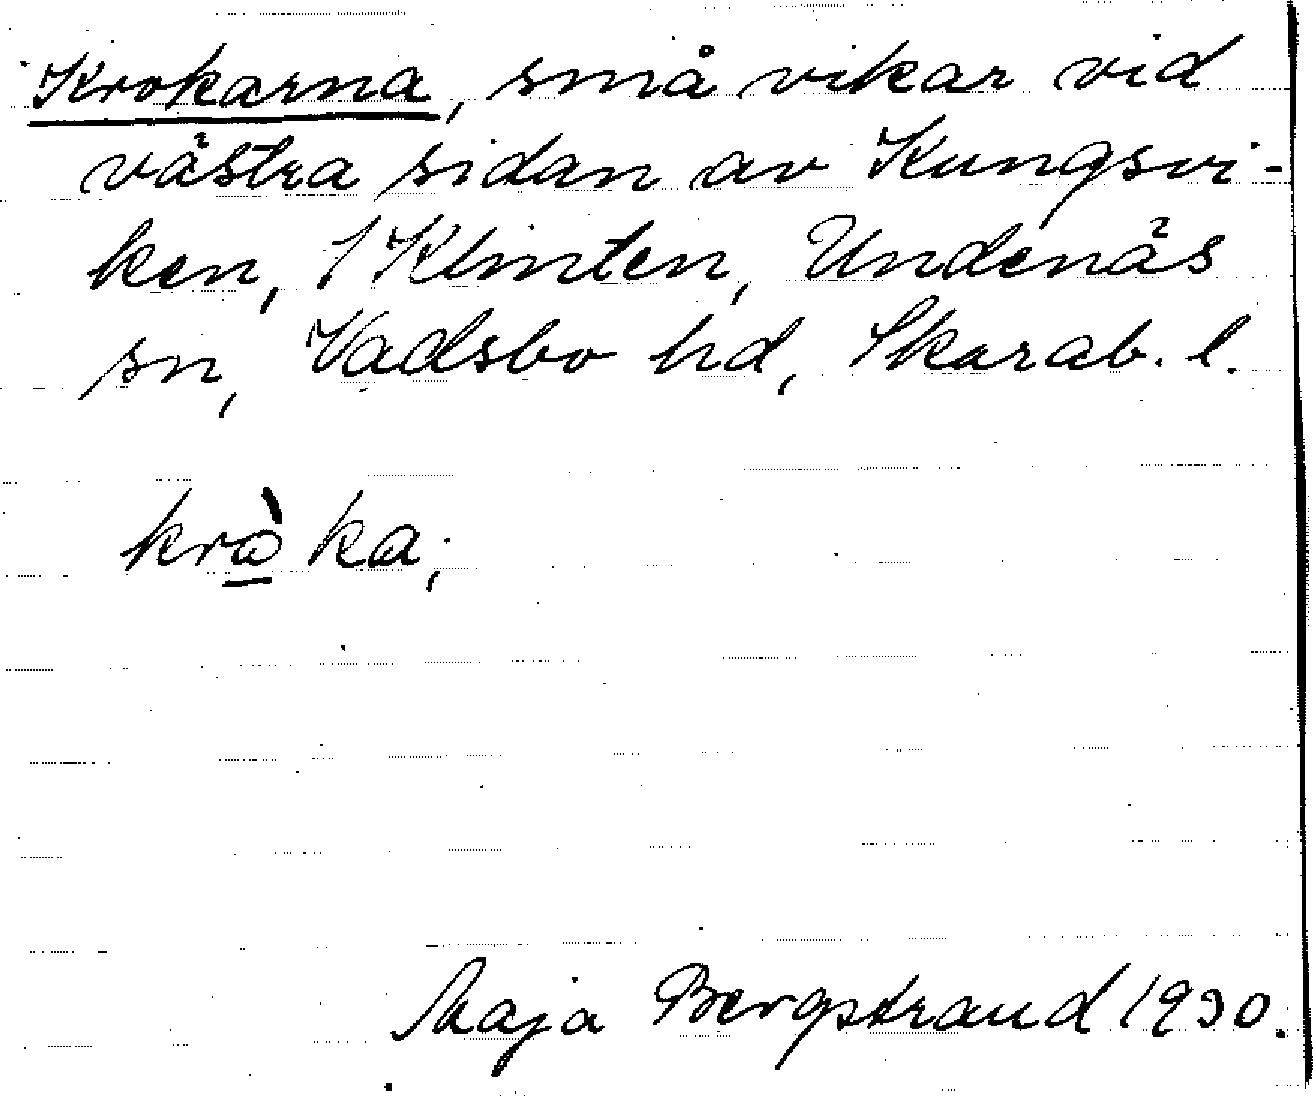 Krokarna, små vikar vid
västra sidan av Kungsvi-
ken, 1 Klinten, Undenäs
sn, Vadsbo hd, Skarab. l.
krò̱ka;
Maja Bergstrand 1930.